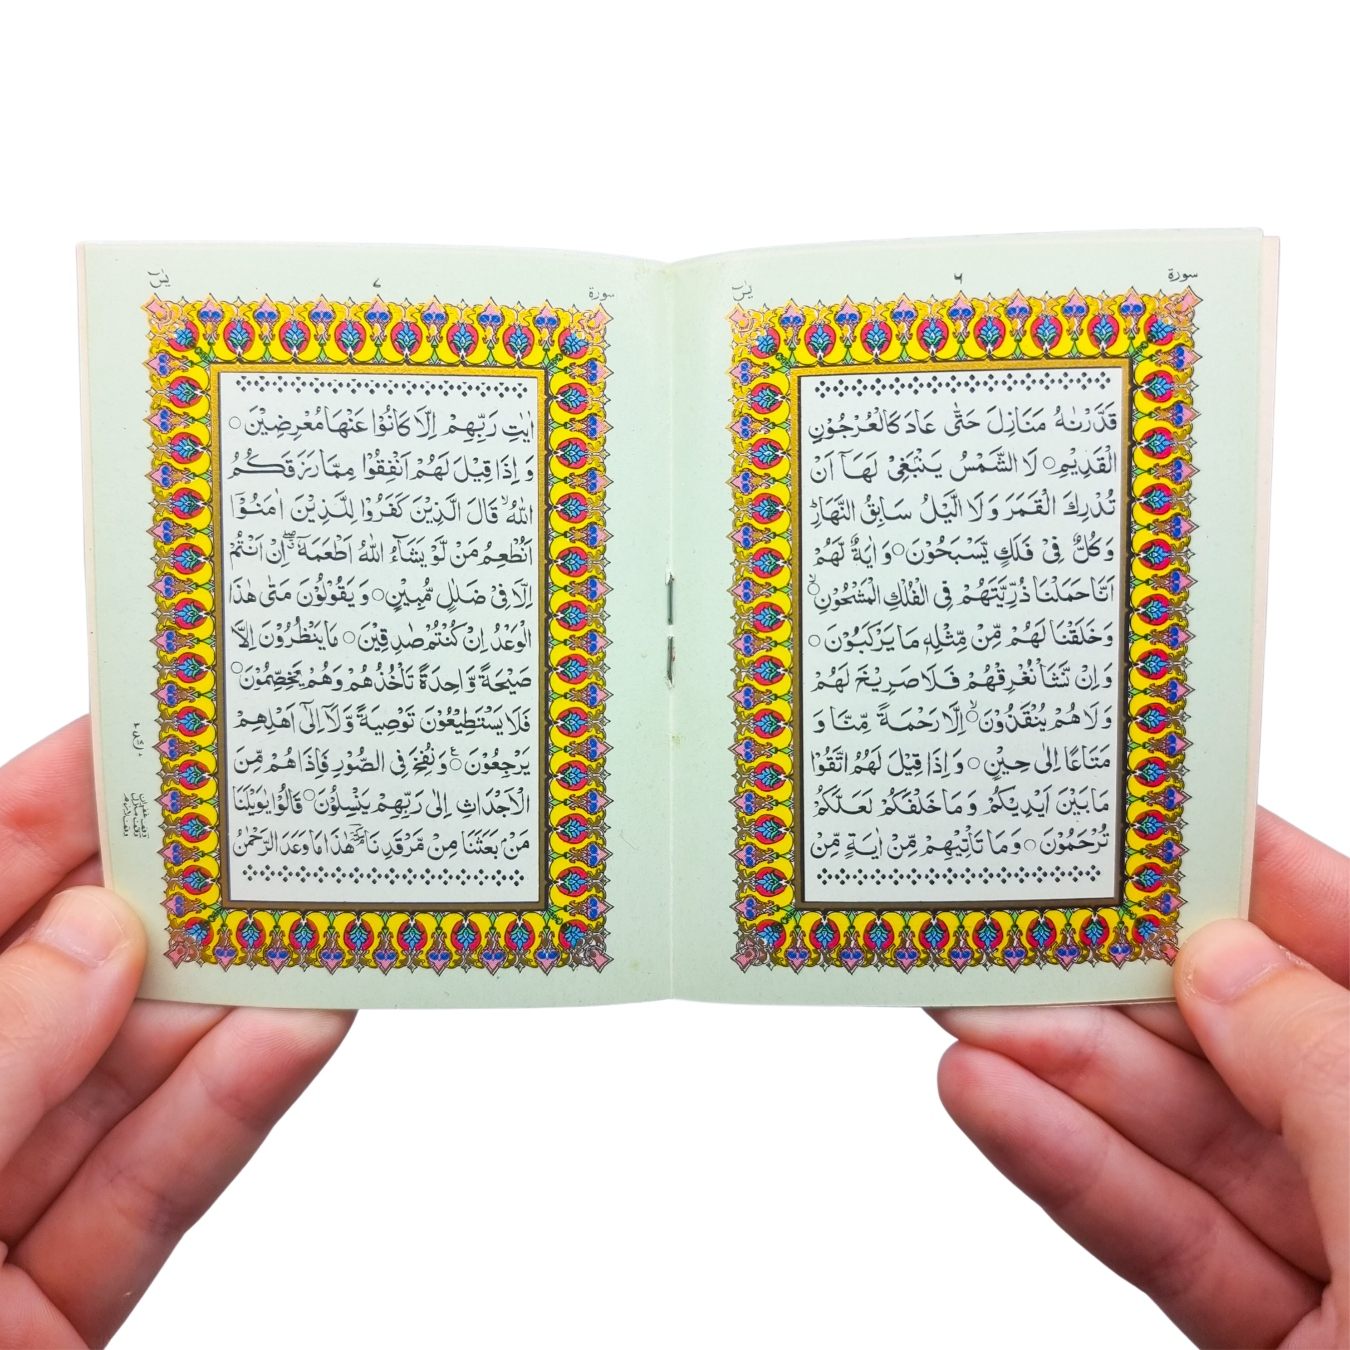 سورة
٦
يٰسٓ
قَدَّرْنٰهُ مَنَازِلَ حَتّٰى عَادَ كَالْعُرْجُوْنِ
الْقَدِيْمِ ○ لَا الشَّمْسُ يَنْۢبَغِيْ لَهَاۤ اَنْ
تُدْرِكَ الْقَمَرَ وَلَا الَّيْلُ سَابِقُ النَّهَارِ ؕ
وَكُلٌّ فِيْ فَلَكٍ يَّسْبَحُوْنَ ○ وَاٰيَةٌ لَّهُمْ
اَنَّا حَمَلْنَا ذُرِّيَّتَهُمْ فِي الْفُلْكِ الْمَشْحُوْنِ ○ۙ
وَخَلَقْنَا لَهُمْ مِّنْ مِّثْلِهٖ مَا يَرْكَبُوْنَ ○
وَاِنْ نَّشَاْ نُغْرِقْهُمْ فَلَا صَرِيْخَ لَهُمْ
وَلَا هُمْ يُنْقَذُوْنَ ○ۙ اِلَّا رَحْمَةً مِّنَّا وَ
مَتَاعًا اِلٰى حِيْنٍ ○ وَاِذَا قِيْلَ لَهُمُ اتَّقُوْا
مَا بَيْنَ اَيْدِيْكُمْ وَمَا خَلْفَكُمْ لَعَلَّكُمْ
تُرْحَمُوْنَ ○ وَمَا تَاْتِيْهِمْ مِّنْ اٰيَةٍ مِّنْ
سورة
٧
يٰسٓ
اٰيٰتِ رَبِّهِمْ اِلَّا كَانُوْا عَنْهَا مُعْرِضِيْنَ ○
وَاِذَا قِيْلَ لَهُمْ اَنْفِقُوْا مِمَّا رَزَقَكُمُ
اللّٰهُ ۙ قَالَ الَّذِيْنَ كَفَرُوْا لِلَّذِيْنَ اٰمَنُوْۤا
اَنُطْعِمُ مَنْ لَّوْ يَشَآءُ اللّٰهُ اَطْعَمَهٗۤ اِنْ اَنْتُمْ
اِلَّا فِيْ ضَلٰلٍ مُّبِيْنٍ ○ وَيَقُوْلُوْنَ مَتٰى هٰذَا
الْوَعْدُ اِنْ كُنْتُمْ صٰدِقِيْنَ ○ مَا يَنْظُرُوْنَ اِلَّا
صَيْحَةً وَّاحِدَةً تَاْخُذُهُمْ وَهُمْ يَخِصِّمُوْنَ ○
فَلَا يَسْتَطِيْعُوْنَ تَوْصِيَةً وَّلَاۤ اِلٰۤى اَهْلِهِمْ
يَرْجِعُوْنَ ○ وَنُفِخَ فِي الصُّوْرِ فَاِذَا هُمْ مِّنَ
الْاَجْدَاثِ اِلٰى رَبِّهِمْ يَنْسِلُوْنَ ○ قَالُوْا يٰوَيْلَنَا
مَنْۢ بَعَثَنَا مِنْ مَّرْقَدِنَا هٰذَا مَا وَعَدَ الرَّحْمٰنُ